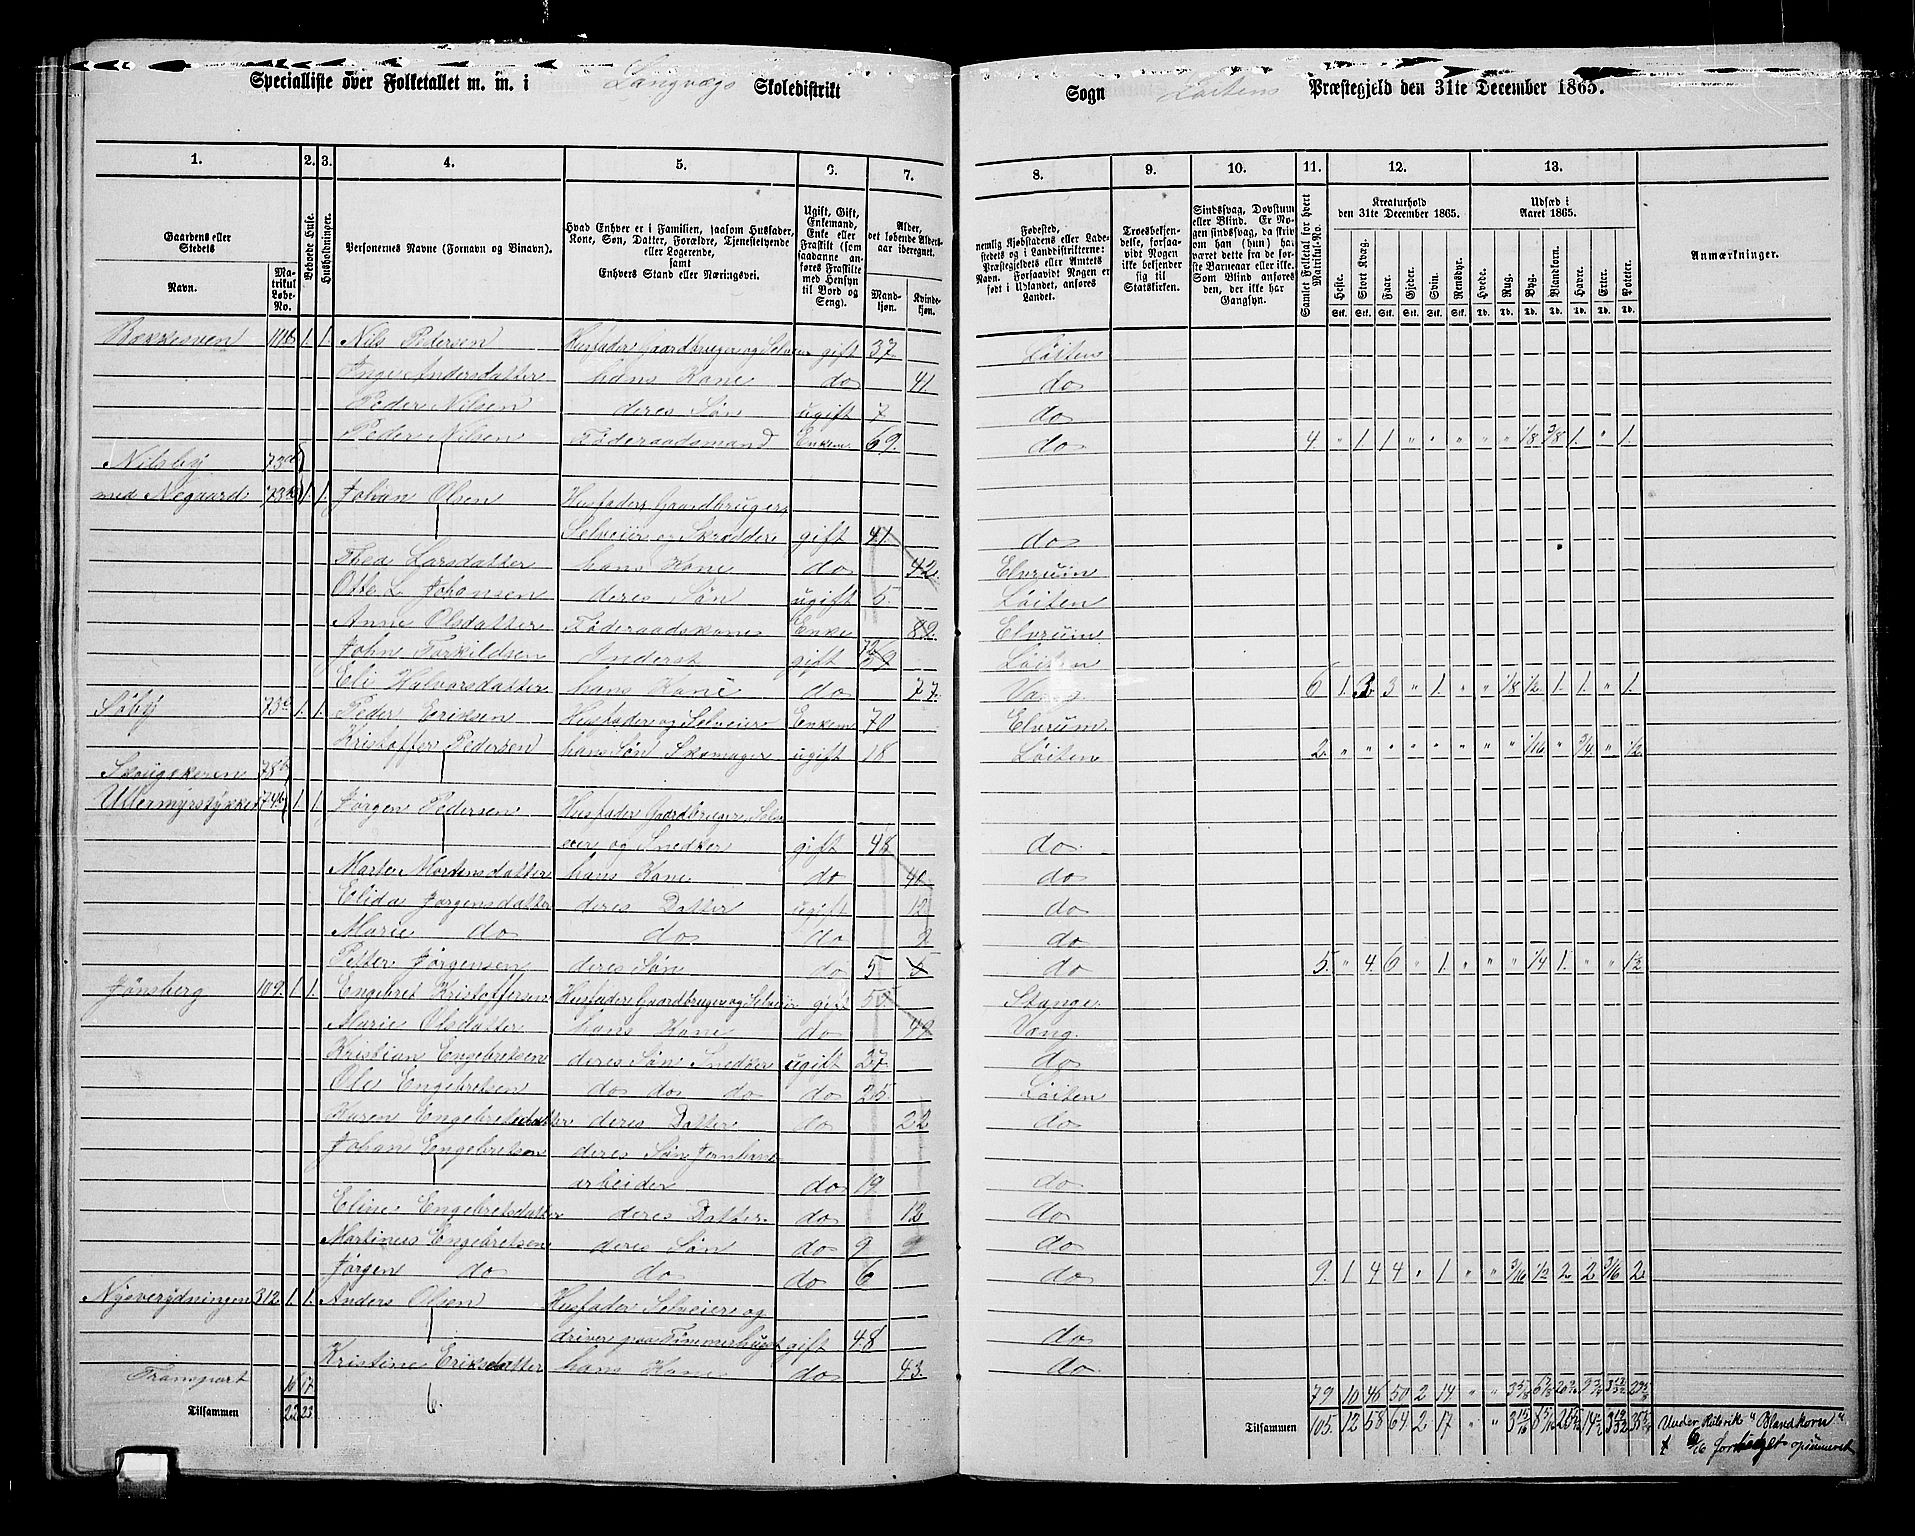 Specialliste over Folketallet m. m. i Langvægs Skoledistrikt Sogn Løitens Præstegjeld den 31te December 1865.
1. 2. 3. 4. 5. 6. 7. 8. 9. 10. 11. 12. 13.
Gaardens eller Stedets Navn. Matrikul Løbe-No. Beboede Huse. Husholdninger. Personernes Navne (Fornavn og Binavn).
Hvad Enhver er i Familien, saasom Husfader, Kone, Søn, Datter, Forældre, Tjenestetyende eller Logerende, samt Enhvers Stand eller Næringsvei.
Ugift, Gift, Enkemand, Enke eller Fraskilt (saadanne anføres Fraskilte med Hensyn til Bord og Seng).
Alder, det løbende Aldersaar iberegnet. Mandkjøn. Kvindekjøn.
Fødested, nemlig Kjøbstadens eller Ladestedets og i Landdistrikterne Præstegjeldets eller Amtets Navn. Forsaavidt Nogen er født i Udlandet, anføres Landet.
Troesbekjendelse, forsaavidt Nogen ikke bekjender sig til Statskirken.
Sindssvag, Døvstum eller Blind.
Samlet Folketal for hvert Matrikul-No.
Kreaturhold den 31te December 1865. Udsæd i Aaret 1865. Anmærkninger.
Heste. Stort Kvæg. Faar. Gjeder. Svin. Rensdyr. Hvede. Rug. Byg. Blandkorn. Havre. Erter. Poteter.
Stk. Stk. Stk. Stk. Stk. Stk. Td. Td. Td. Td. Td. Td. Td.
Bakkesven 1. 1. Nils Pedersen Husfader Gaardbruger og Selveier gift 37 Løiten
Inge Andersdatter hans Kone do 41 do
Peder Nilsen deres Søn ugift 7 do
Peder Nilsen Føderaadsmand Enkem 69. do 4. " 1 1 " " " " " 1/8 3/8 1. " 1.
Nilsby
med Negaard 1. 1. Johan Olsen Husfader Gaardbruger
Selveier og Skrædder gift 41. do
Thea Larsdatter hans Kone do 42 Elvrum
Otte L Johansen deres Søn ugift 5. Løiten
Anne Olsdatter Føderaadskone Enke 82. Elvrum
John Tarkildsen Inderst gift Løiten
Eli Halvorsdatter hans Kone do 77. Vang 6 1. 3 3 " 1. " " 1/8 1/2 1. 1. " 1.
Søby 1. 1. Peder Eriksen Husfader og Selveier Enkem 70 Elvrum
Kristoffer Pedersen hans Søn Skomager ugift 18 Løiten 2. " " " " " " " " 1/16 " 3/4 " 1/2
Skougskoren
Ullermyrstykket 1 1. Jørgen Pedersen Husfader Gaardbruger Selv
eier og Snedker gift 48 do
Marte Mortensdatter hans Kone do 40 do
Elida Jørgensdatter deres Datter ugift 12 do
Marie do do do 2 do
Petter Jørgensen deres Søn do 5 5 do 5. " 4. 6 " 1. " " " 1/4 1. " " 1 1/2
Jønsberg 109. 1. 1. Engebret Kristoffersen Husfader Gaardbruger og Selveier gift 55 Stange
Marie Olsdatter hans Kone do 49 Vang
Kristian Engebretsen deres Søn Snedker ugift 27 do
Ole Engebretsen do do do do 25 Løiten
Karen Engebretsdatter deres Datter do 22 do
Johan Engebretsen deres Søn Jernbane
arbeider do 19 do
Eline Engebretsdatter deres Datter do 12 do
Martinus Engebretsen deres Søn do 9 do
Jørgen do do do 6 do 9. 1 4 4 " 1 " " 3/16 1/2 2 2 3/16 2
Nyeverydningen 312 1. 1. Anders Olsen Husfader Selveier og
driver paa Tømmerhugst gift 48 do
Kristine Eriksdatter hans Kone do 43. do
Transport 16 17 79 10 46 50 2 14 " "
Tilsammen 22 23 6. Tilsammen 105. 12 58 64 2 17 " "
Under Rubrik "Blandkorn"